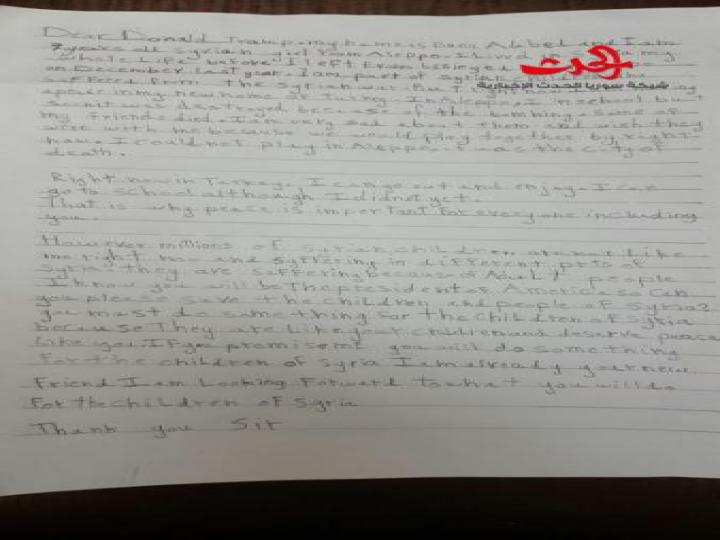 Dear Donald Tramp. my name is Bana Alabed and I am
7 years old Syrian girl from Aleppo. I lived in Syria my
whole life before I left from besieged
on December last year. I am part of Syrian children who
suffered from the Syrian war. But right now I am having
apeace in my new home of Turkey. In Aleppo, I in school but
soon it was destroyed because of the bombing. Some of
my friends died. I am very sad about them and wish they
were with me because we would play together by right
now. I could not play in Aleppo. it was the city of
death.
Right now in Turkey. I can go out and enjoy. I can
go to school although I didnot yet.
That is why peace is important for everyone including
you.
However millions of Syrian children are not like
me right now and suffering in different prts of
Syria. they are suffering because of Adult people
I know you will be the president of America so can
you please save the children and people of Syria?
you must do something for the children of Syria
because They are like your children and deserve peace
like you. If you promise me you will do something
for the children of Syria I am already your new
friend I am Looking Forward to what you will do
for the children of Syria
Thank you Sir
الحدث
شبكة سوريا الحدث الإخبارية